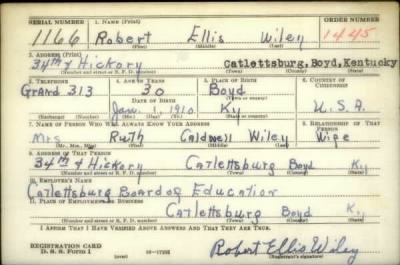 SERIAL NUMBER 1. NAME (Print) ORDER NUMBER
1166 Robert Ellis Wiley 1445
(First) (Middle) (Last)
2. ADDRESS (Print)
34th & Hickory Catlettsburg, Boyd, Kentucky
(Number and street or R. F. D. number) (Town) (County) (State)
3. TELEPHONE 4. AGE IN YEARS 5. PLACE OF BIRTH 6. COUNTRY OF CITIZENSHIP
Grand 313 30 Boyd
DATE OF BIRTH (Town or county)
Jan. 1, 1910 Ky U.S.A.
(Exchange) (Number) (Mo.) (Day) (Yr.) (State or country)
7. NAME OF PERSON WHO WILL ALWAYS KNOW YOUR ADDRESS 8. RELATIONSHIP OF THAT PERSON
Mrs Ruth Caldwell Wiley Wife
(Mr., Mrs., Miss) (First) (Middle) (Last)
9. ADDRESS OF THAT PERSON
34th & Hickory Catlettsburg Boyd Ky
(Number and street or R. F. D. number) (Town) (County) (State)
10. EMPLOYER'S NAME
Catlettsburg Board of Education
11. PLACE OF EMPLOYMENT OR BUSINESS
Catlettsburg Boyd Ky
(Number and street or R. F. D. number) (Town) (County) (State)
I AFFIRM THAT I HAVE VERIFIED ABOVE ANSWERS AND THAT THEY ARE TRUE.
REGISTRATION CARD
D. S. S. Form 1 Robert Ellis Wiley
(Registrant's signature)